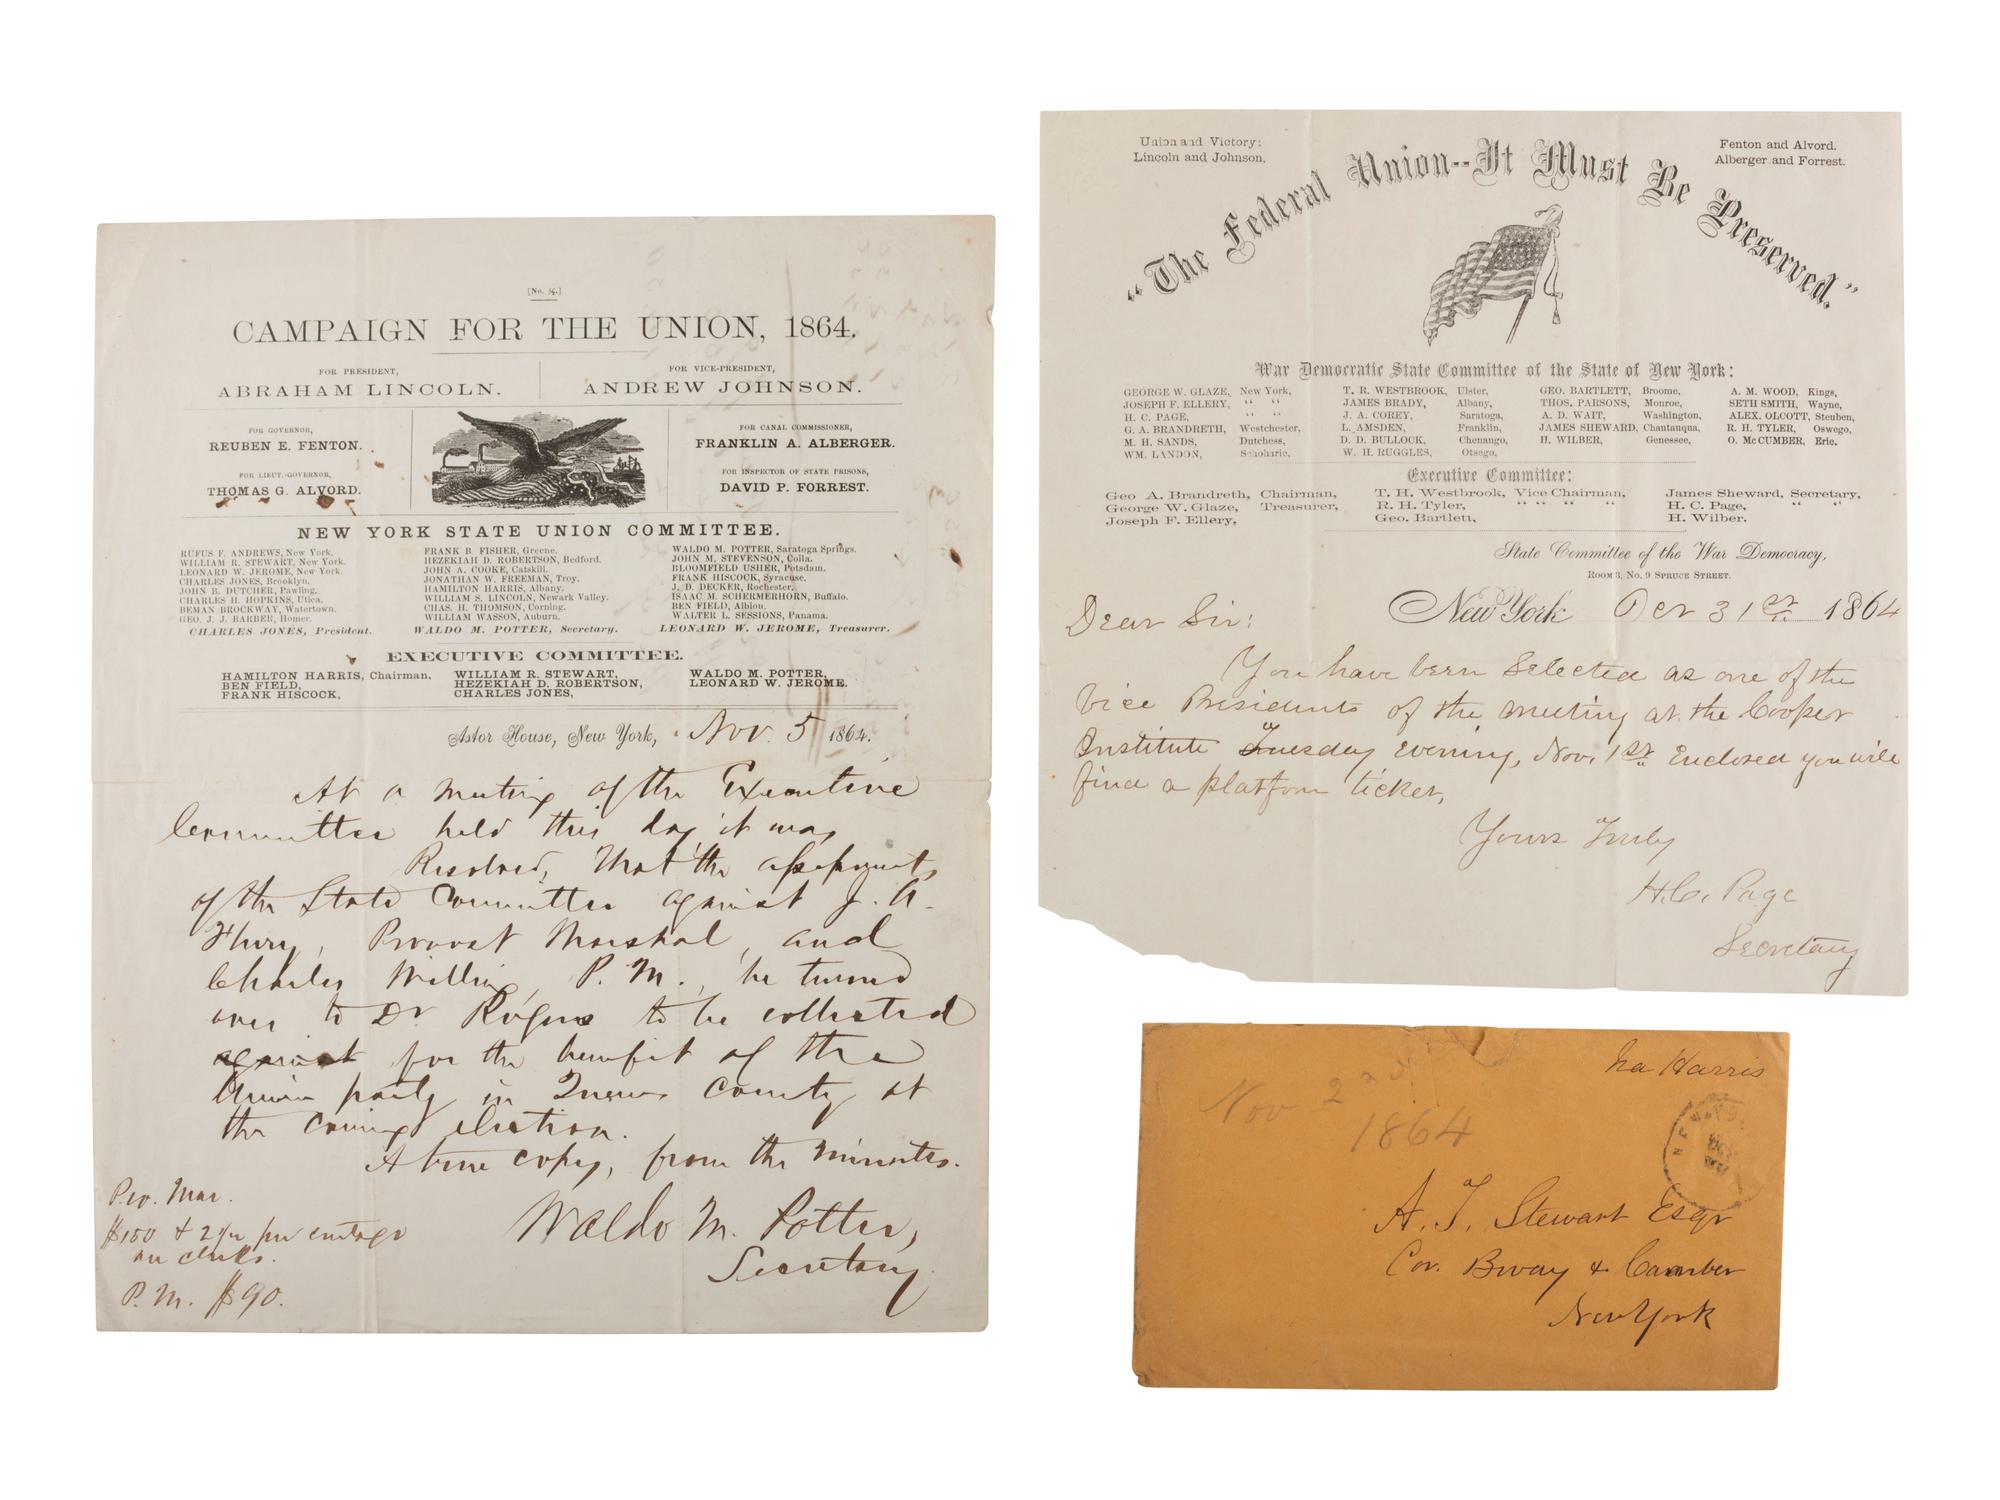 [No. ¾.]
CAMPAIGN FOR THE UNION, 1864.
FOR PRESIDENT,
ABRAHAM LINCOLN.
FOR VICE-PRESIDENT,
ANDREW JOHNSON.
FOR GOVERNOR,
REUBEN E. FENTON.
FOR LIEUT.-GOVERNOR,
THOMAS G. ALVORD.
FOR CANAL COMMISSIONER,
FRANKLIN A. ALBERGER.
FOR INSPECTOR OF STATE PRISONS,
DAVID P. FORREST.
NEW YORK STATE UNION COMMITTEE.
RUFUS F. ANDREWS, New York.
WILLIAM R. STEWART, New York.
LEONARD W. JEROME, New York.
CHARLES JONES, Brooklyn.
JOHN B. DUTCHER, Pawling.
CHARLES H. HOPKINS, Utica.
BEMAN BROCKWAY, Watertown.
GEO. J. J. BARBER, Homer.
FRANK B. FISHER, Greene.
HEZEKIAH D. ROBERTSON, Bedford.
JOHN A. COOKE, Catskill.
JONATHAN W. FREEMAN, Troy.
HAMILTON HARRIS, Albany.
WILLIAM S. LINCOLN, Newark Valley.
CHAS. H. THOMSON, Corning.
WILLIAM WASSON, Auburn.
WALDO M. POTTER, Saratoga Springs.
JOHN M. STEVENSON, Colla.
BLOOMFIELD USHER, Potsdam.
FRANK HISCOCK, Syracuse.
J. D. DECKER, Rochester.
ISAAC M. SCHERMERHORN, Buffalo.
BEN FIELD, Albion.
WALTER L. SESSIONS, Panama.
CHARLES JONES, President. WALDO M. POTTER, Secretary. LEONARD W. JEROME, Treasurer.
EXECUTIVE COMMITTEE.
HAMILTON HARRIS, Chairman,
BEN FIELD,
FRANK HISCOCK,
WILLIAM R. STEWART,
HEZEKIAH D. ROBERTSON,
CHARLES JONES,
WALDO M. POTTER,
LEONARD W. JEROME.
Astor House, New York, Nov. 5 1864.
At a meeting of the Executive
Committee held this day it was
Resolved, That the assessments
of the State Committee against J. A.
Provost Marshal, and
Charles P. M., be turned
over to Dr Rogers to be collected
against for the benefit of the
Union party in Queens County at
the coming election.
A true copy, from the minutes.
Waldo M. Potter,
Secretary.
Pro. Mar.
$150 & 2
on clerks.
P. M. $90.
Union and Victory:
Lincoln and Johnson.
Fenton and Alvord.
Alberger and Forrest.
"The Federal Union--It Must Be Preserved."
War Democratic State Committee of the State of New York:
GEORGE W. GLAZE, New York,
JOSEPH F. ELLERY, " "
H. C. PAGE, " "
G. A. BRANDRETH, Westchester,
M. H. SANDS, Dutchess,
WM. LANDON, Schoharie,
T. R. WESTBROOK, Ulster,
JAMES BRADY, Albany,
J. A. COREY, Saratoga,
L. AMSDEN, Franklin,
D. D. BULLOCK, Chenango,
W. H. RUGGLES, Otsego,
GEO. BARTLETT, Broome,
THOS. PARSONS, Monroe,
A. D. WAIT, Washington,
JAMES SHEWARD, Chautauqua,
H. WILBER, Genessee,
A. M. WOOD, Kings,
SETH SMITH, Wayne,
ALEX. OLCOTT, Steuben,
R. H. TYLER, Oswego,
O. McCUMBER, Erie.
Executive Committee:
Geo A. Brandreth, Chairman,
George W. Glaze, Treasurer,
Joseph F. Ellery,
T. H. Westbrook, Vice Chairman,
R. H. Tyler, " " " "
Geo. Bartlett,
James Sheward, Secretary,
H. C. Page, " "
H. Wilber.
State Committee of the War Democracy,
ROOM 3, NO. 9 SPRUCE STREET.
New York Oct 31st 1864
Dear Sir:
You have been selected as one of the
Vice Presidents of the meeting at the Cooper
Institute Tuesday evening, Nov. 1st. Enclosed you will
find a platform ticket,
Yours Truly
H. C. Page
Secretary
Ira Harris
Nov 2nd
1864
NEW-YORK
A. T. Stewart Esqr
Cor. Bway & Camber
New York